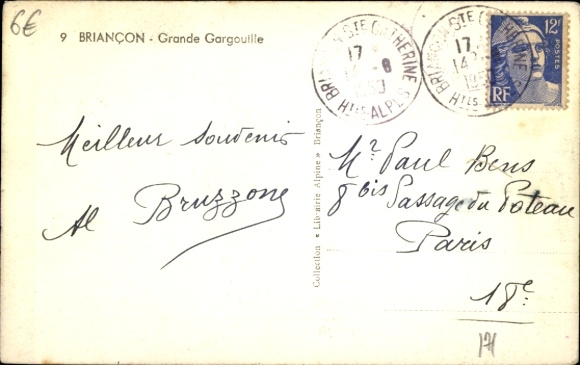 6€
9 BRIANÇON - Grande Gargouille
BRIANÇON STE CATHERINE
17
14-8
1950
HTES ALPES
BRIANÇON STE CATHERINE
17
14
HTES
12F
POSTES
RF
Meilleur souvenir
Al Bruzzone
Collection « Librairie Alpine » Briançon
Mr Paul Bens
8 bis Passage du Poteau
Paris
18e